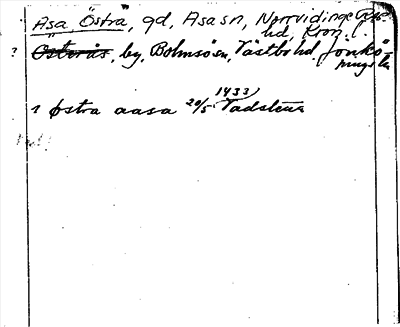 Asa Östra, gd, Asa sn, Norrvidinge
hd, Kron. l.
? Österås, by, Bolmsö sn, Västbo hd, Jönkö-
pings l.
1433
1 østra aasa 20/5 Vadstena